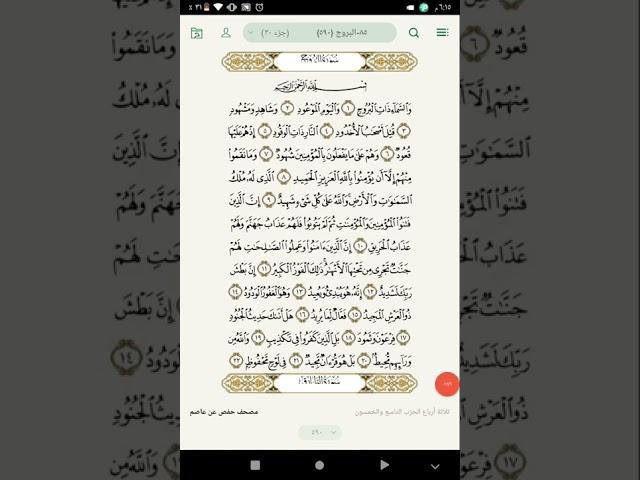 ٦:١٥ م
٣١ %
٨٥-البروج (٥٩٠)
(جزء ٣٠)
سُورَةُ البُرُوجِ
بِسْمِ اللَّهِ الرَّحْمَٰنِ الرَّحِيمِ
وَالسَّمَاءِ ذَاتِ الْبُرُوجِ ١ وَالْيَوْمِ الْمَوْعُودِ ٢ وَشَاهِدٍ وَمَشْهُودٍ
٣ قُتِلَ أَصْحَابُ الْأُخْدُودِ ٤ النَّارِ ذَاتِ الْوَقُودِ ٥ إِذْ هُمْ عَلَيْهَا
قُعُودٌ ٦ وَهُمْ عَلَىٰ مَا يَفْعَلُونَ بِالْمُؤْمِنِينَ شُهُودٌ ٧ وَمَا نَقَمُوا
مِنْهُمْ إِلَّا أَن يُؤْمِنُوا بِاللَّهِ الْعَزِيزِ الْحَمِيدِ ٨ الَّذِي لَهُ مُلْكُ
السَّمَاوَاتِ وَالْأَرْضِ وَاللَّهُ عَلَىٰ كُلِّ شَيْءٍ شَهِيدٌ ٩ إِنَّ الَّذِينَ
فَتَنُوا الْمُؤْمِنِينَ وَالْمُؤْمِنَاتِ ثُمَّ لَمْ يَتُوبُوا فَلَهُمْ عَذَابُ جَهَنَّمَ وَلَهُمْ
عَذَابُ الْحَرِيقِ ١٠ إِنَّ الَّذِينَ ءَامَنُوا وَعَمِلُوا الصَّالِحَاتِ لَهُمْ
جَنَّاتٌ تَجْرِي مِن تَحْتِهَا الْأَنْهَارُ ذَٰلِكَ الْفَوْزُ الْكَبِيرُ ١١ إِنَّ بَطْشَ
رَبِّكَ لَشَدِيدٌ ١٢ إِنَّهُ هُوَ يُبْدِئُ وَيُعِيدُ ١٣ وَهُوَ الْغَفُورُ الْوَدُودُ ١٤
ذُو الْعَرْشِ الْمَجِيدُ ١٥ فَعَّالٌ لِّمَا يُرِيدُ ١٦ هَلْ أَتَاكَ حَدِيثُ الْجُنُودِ
١٧ فِرْعَوْنَ وَثَمُودَ ١٨ بَلِ الَّذِينَ كَفَرُوا فِي تَكْذِيبٍ ١٩ وَاللَّهُ مِن
وَرَائِهِم مُّحِيطٌ ٢٠ بَلْ هُوَ قُرْءَانٌ مَّجِيدٌ ٢١ فِي لَوْحٍ مَّحْفُوظٍ ٢٢
سُورَةُ الطَّارِقِ
ثلاثة أرباع الحزب التاسع والخمسون
مصحف حفص عن عاصم
٥٩٠